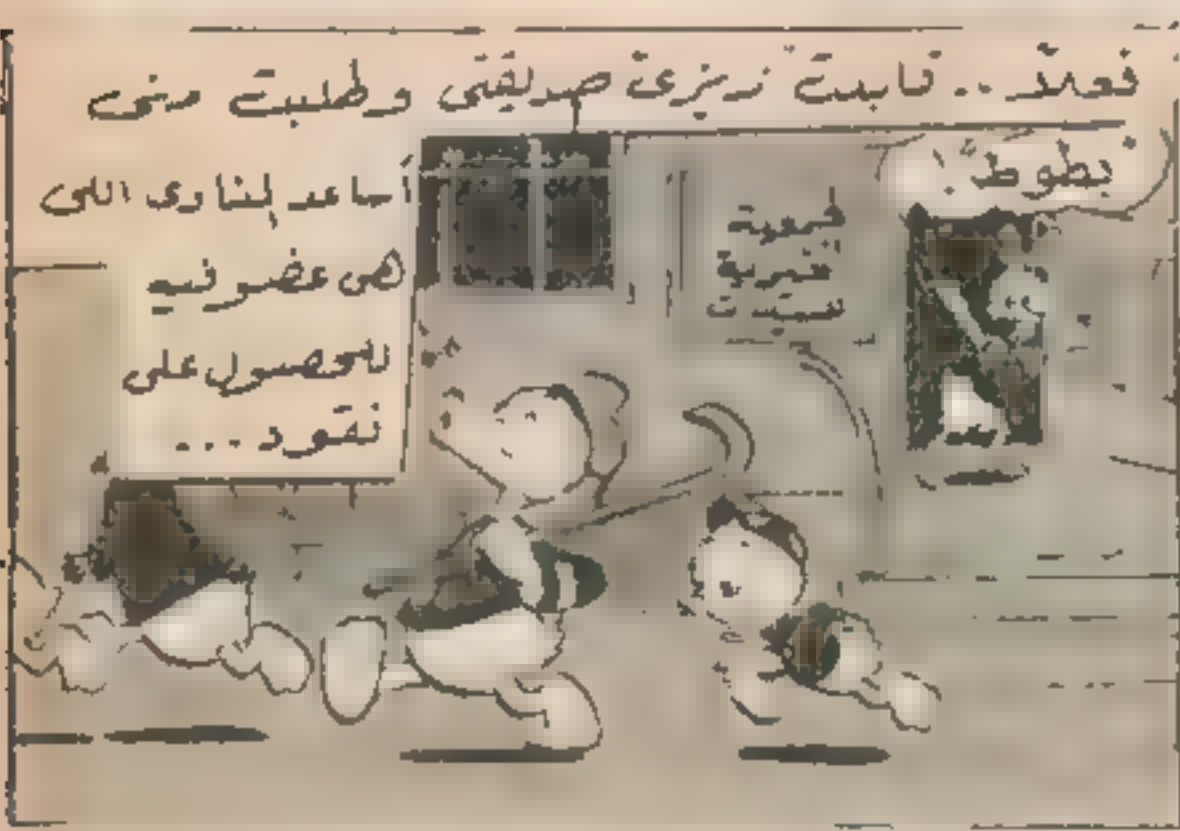 فعلاً .. قابلت زيزى صديقتى وطلبت منى
أساعد النادى اللى
هى عضو فيه
للحصول على
نقود ...
بطوط !
جمعية
خيرية